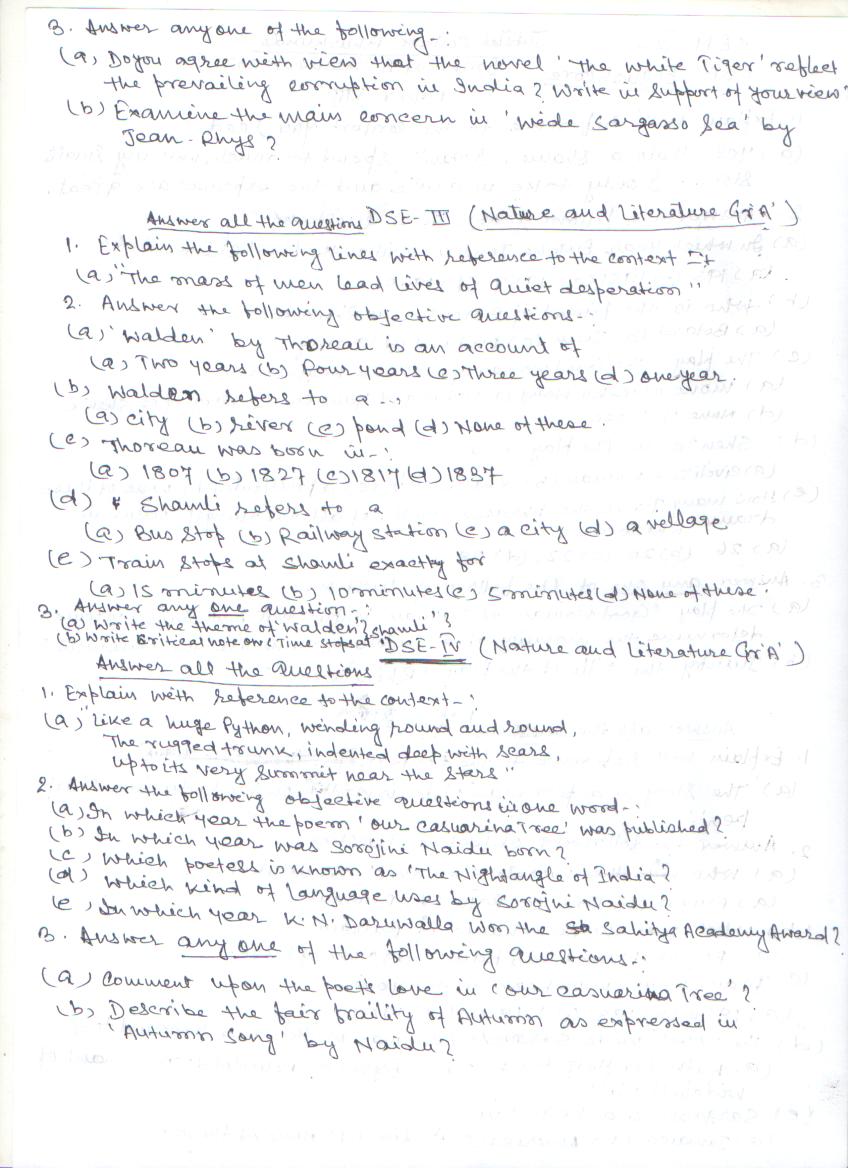 3. Answer any one of the following-:
(a) Do you agree with view that the novel 'The White Tiger' reflect
the prevailing corruption in India? Write in support of your view?
(b) Examine the main concern in 'Wide Sargasso Sea' by
Jean-Rhys?
Answer all the questions DSE-III (Nature and Literature Gr'A')
1. Explain the following lines with reference to the context :-
(a) "The mass of men lead lives of quiet desperation"
2. Answer the following objective questions-:
(a) 'Walden' by Thoreau is an account of
(a) Two years (b) Four years (c) Three years (d) one year.
(b) Walden refers to a -:
(a) city (b) river (c) pond (d) None of these.
(c) Thoreau was born in-:
(a) 1807 (b) 1827 (c) 1817 (d) 1837
(d) Shamli refers to a
(a) Bus Stop (b) Railway station (c) a city (d) a village
(e) Train stops at Shamli exactly for
(a) 15 minutes (b) 10 minutes (c) 5 minutes (d) None of these.
3. Answer any one question-:
(a) Write the theme of 'Walden'?
(b) Write Critical note on 'Time stops at Shamli'?
DSE-IV (Nature and Literature Gr'A')
Answer all the Questions
1. Explain with reference to the context-:
(a) "Like a huge Python, winding round and round,
The rugged trunk, indented deep with scars,
Up to its very summit near the stars"
2. Answer the following objective questions in one word-:
(a) In which year the poem 'our Casuarina Tree' was published?
(b) In which year was Sorojini Naidu born?
(c) Which poetess is known as 'The Nightangle of India?
(d) Which kind of language uses by Sorojni Naidu?
(e) In which year K.N. Daruwalla won the Sahitya Academy Award?
3. Answer any one of the following questions-:
(a) Comment upon the poet's love in 'our casuarina Tree'?
(b) Describe the fair fraility of Autumn as expressed in
'Autumn Song' by Naidu?